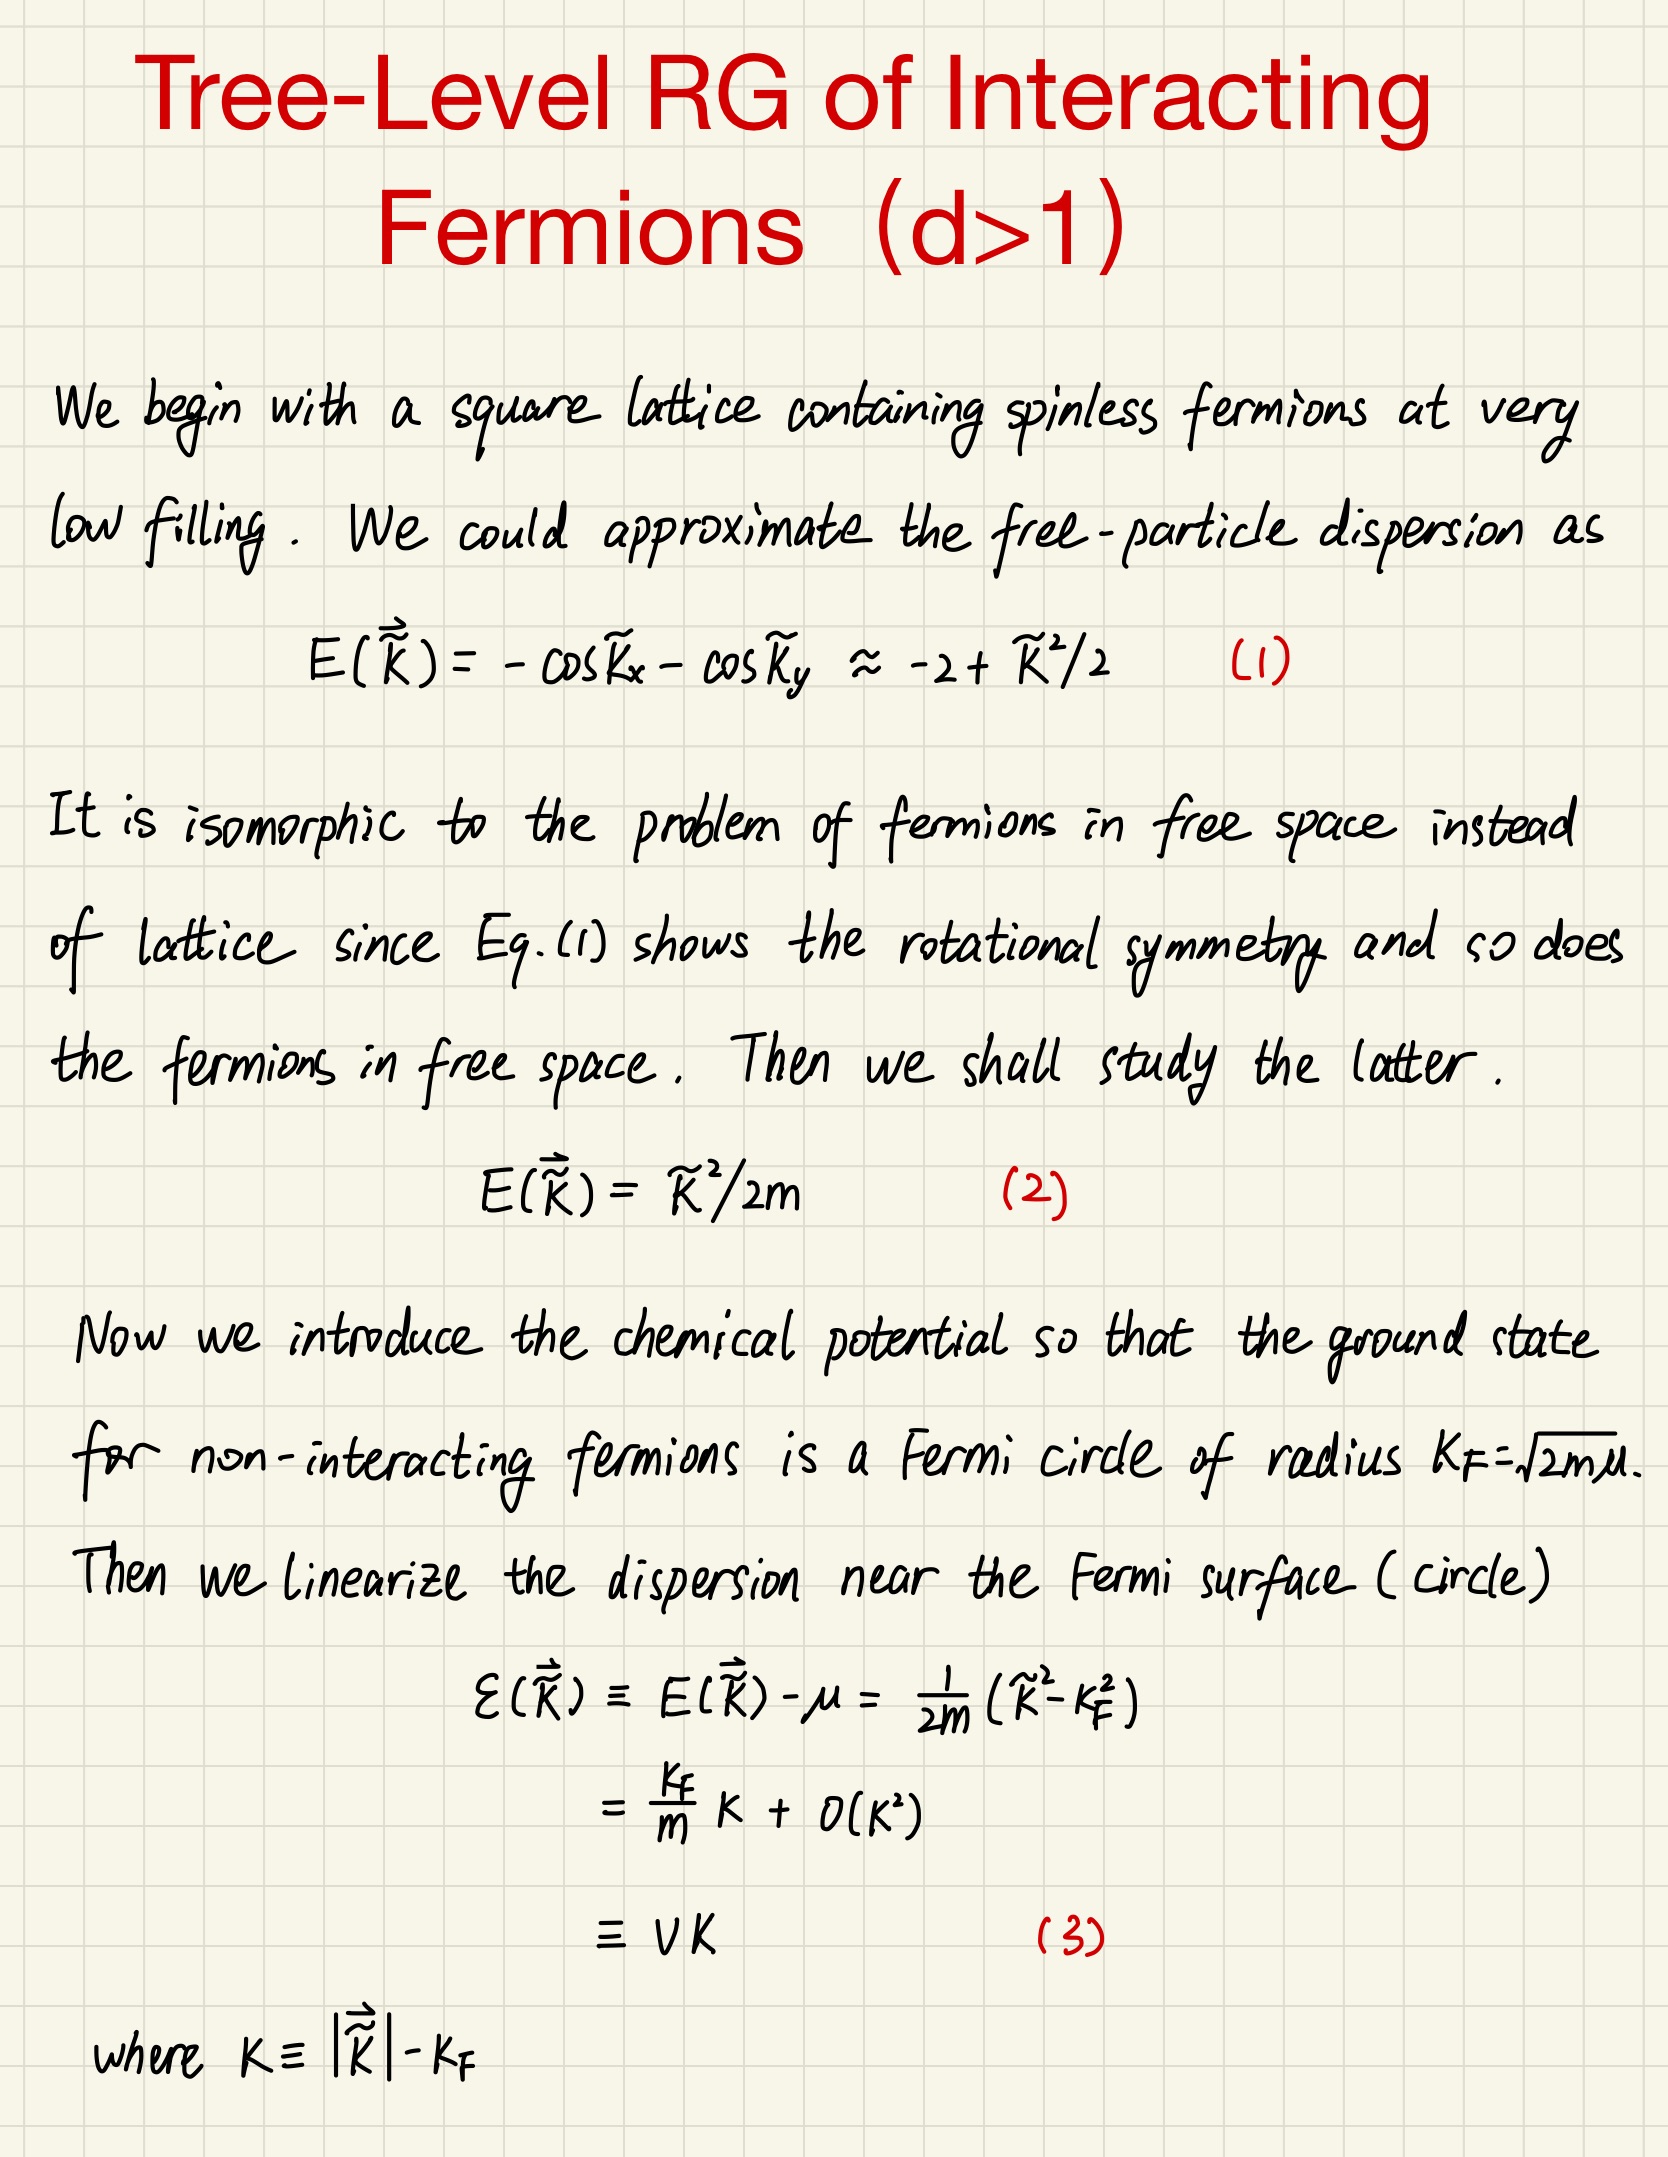 Tree-Level RG of Interacting
Fermions (d>1)
We begin with a square lattice containing spinless fermions at very
low filling. We could approximate the free-particle dispersion as
E(\vec{\tilde{K}}) = - cos\tilde{K}_x - cos\tilde{K}_y ≈ -2 + \tilde{K}²/2 (1)
It is isomorphic to the problem of fermions in free space instead
of lattice since Eq.(1) shows the rotational symmetry and so does
the fermions in free space. Then we shall study the latter.
E(\vec{\tilde{K}}) = \tilde{K}²/2m (2)
Now we introduce the chemical potential so that the ground state
for non-interacting fermions is a Fermi circle of radius K_F=√2mμ.
Then we linearize the dispersion near the Fermi surface (circle)
ε(\vec{\tilde{K}}) ≡ E(\vec{\tilde{K}}) - μ = \frac{1}{2m} (\tilde{K}² - K_F²)
= \frac{K_F}{m} K + O(K²)
≡ vK (3)
where K ≡ |\vec{\tilde{K}}| - K_F